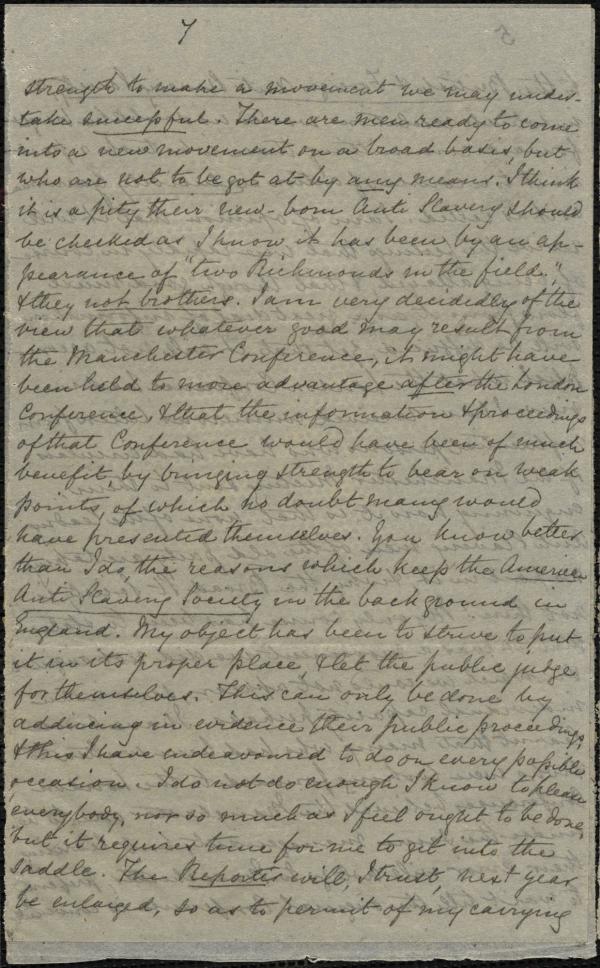 7
strength to make a movement we may under-
take successful. There are men ready to come
into a new movement on a broad basis, but
who are not to be got at by any means. I think
it is a pity their new-born Anti Slavery should
be checked as I know it has been by an ap-
pearance of "two Richmonds in the field,"
& they not brothers. I am very decidedly of the
view that whatever good may result from
the Manchester Conference, it might have
been held to more advantage after the London
Conference, & that the information & proceedings
of that Conference would have been of much
benefit, by bringing strength to bear on weak
points, of which no doubt many would
have presented themselves. You know better
than I do, the reasons which keep the American
Anti Slavery Society in the background in
England. My object has been to strive to put
it in its proper place, & let the public judge
for themselves. This can only be done by
adducing in evidence their public proceedings,
& this I have endeavoured to do on every possible
occasion. I do not do enough I know to please
everybody, nor so much as I feel ought to be done,
but it requires time for me to get into the
saddle. The Reporter will, I trust, next year
be enlarged, so as to permit of my carrying